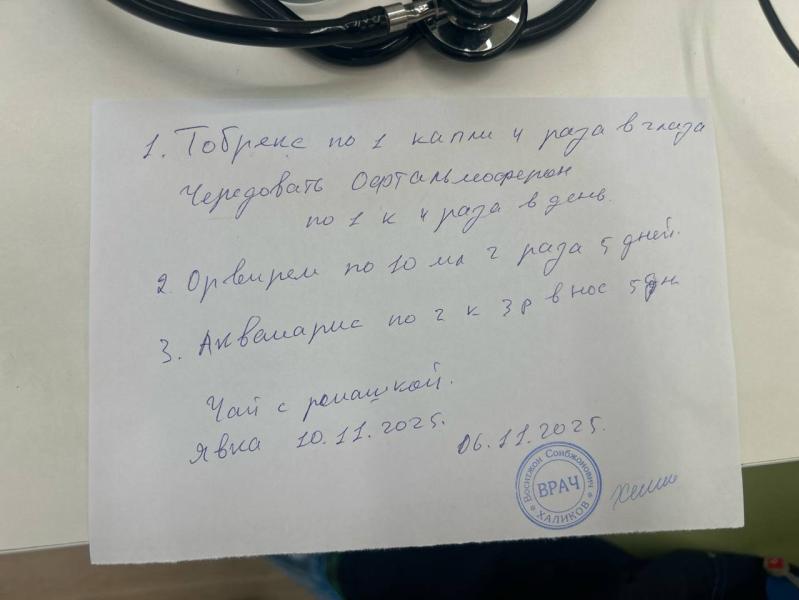 1. Тобрекс по 1 капли 4 раза в глаза
Чередовать Офтальмоферон
по 1 к 4 раза в день.
2. Орвирем по 10 мл 2 раза 5 дней.
3. Аквамарис по 2 к 3 р в нос 5 дн
Чай с ромашкой.
Явка 10.11.2025.
06.11.2025.
Воситжон Соибжонович
ВРАЧ
ХАЛИКОВ